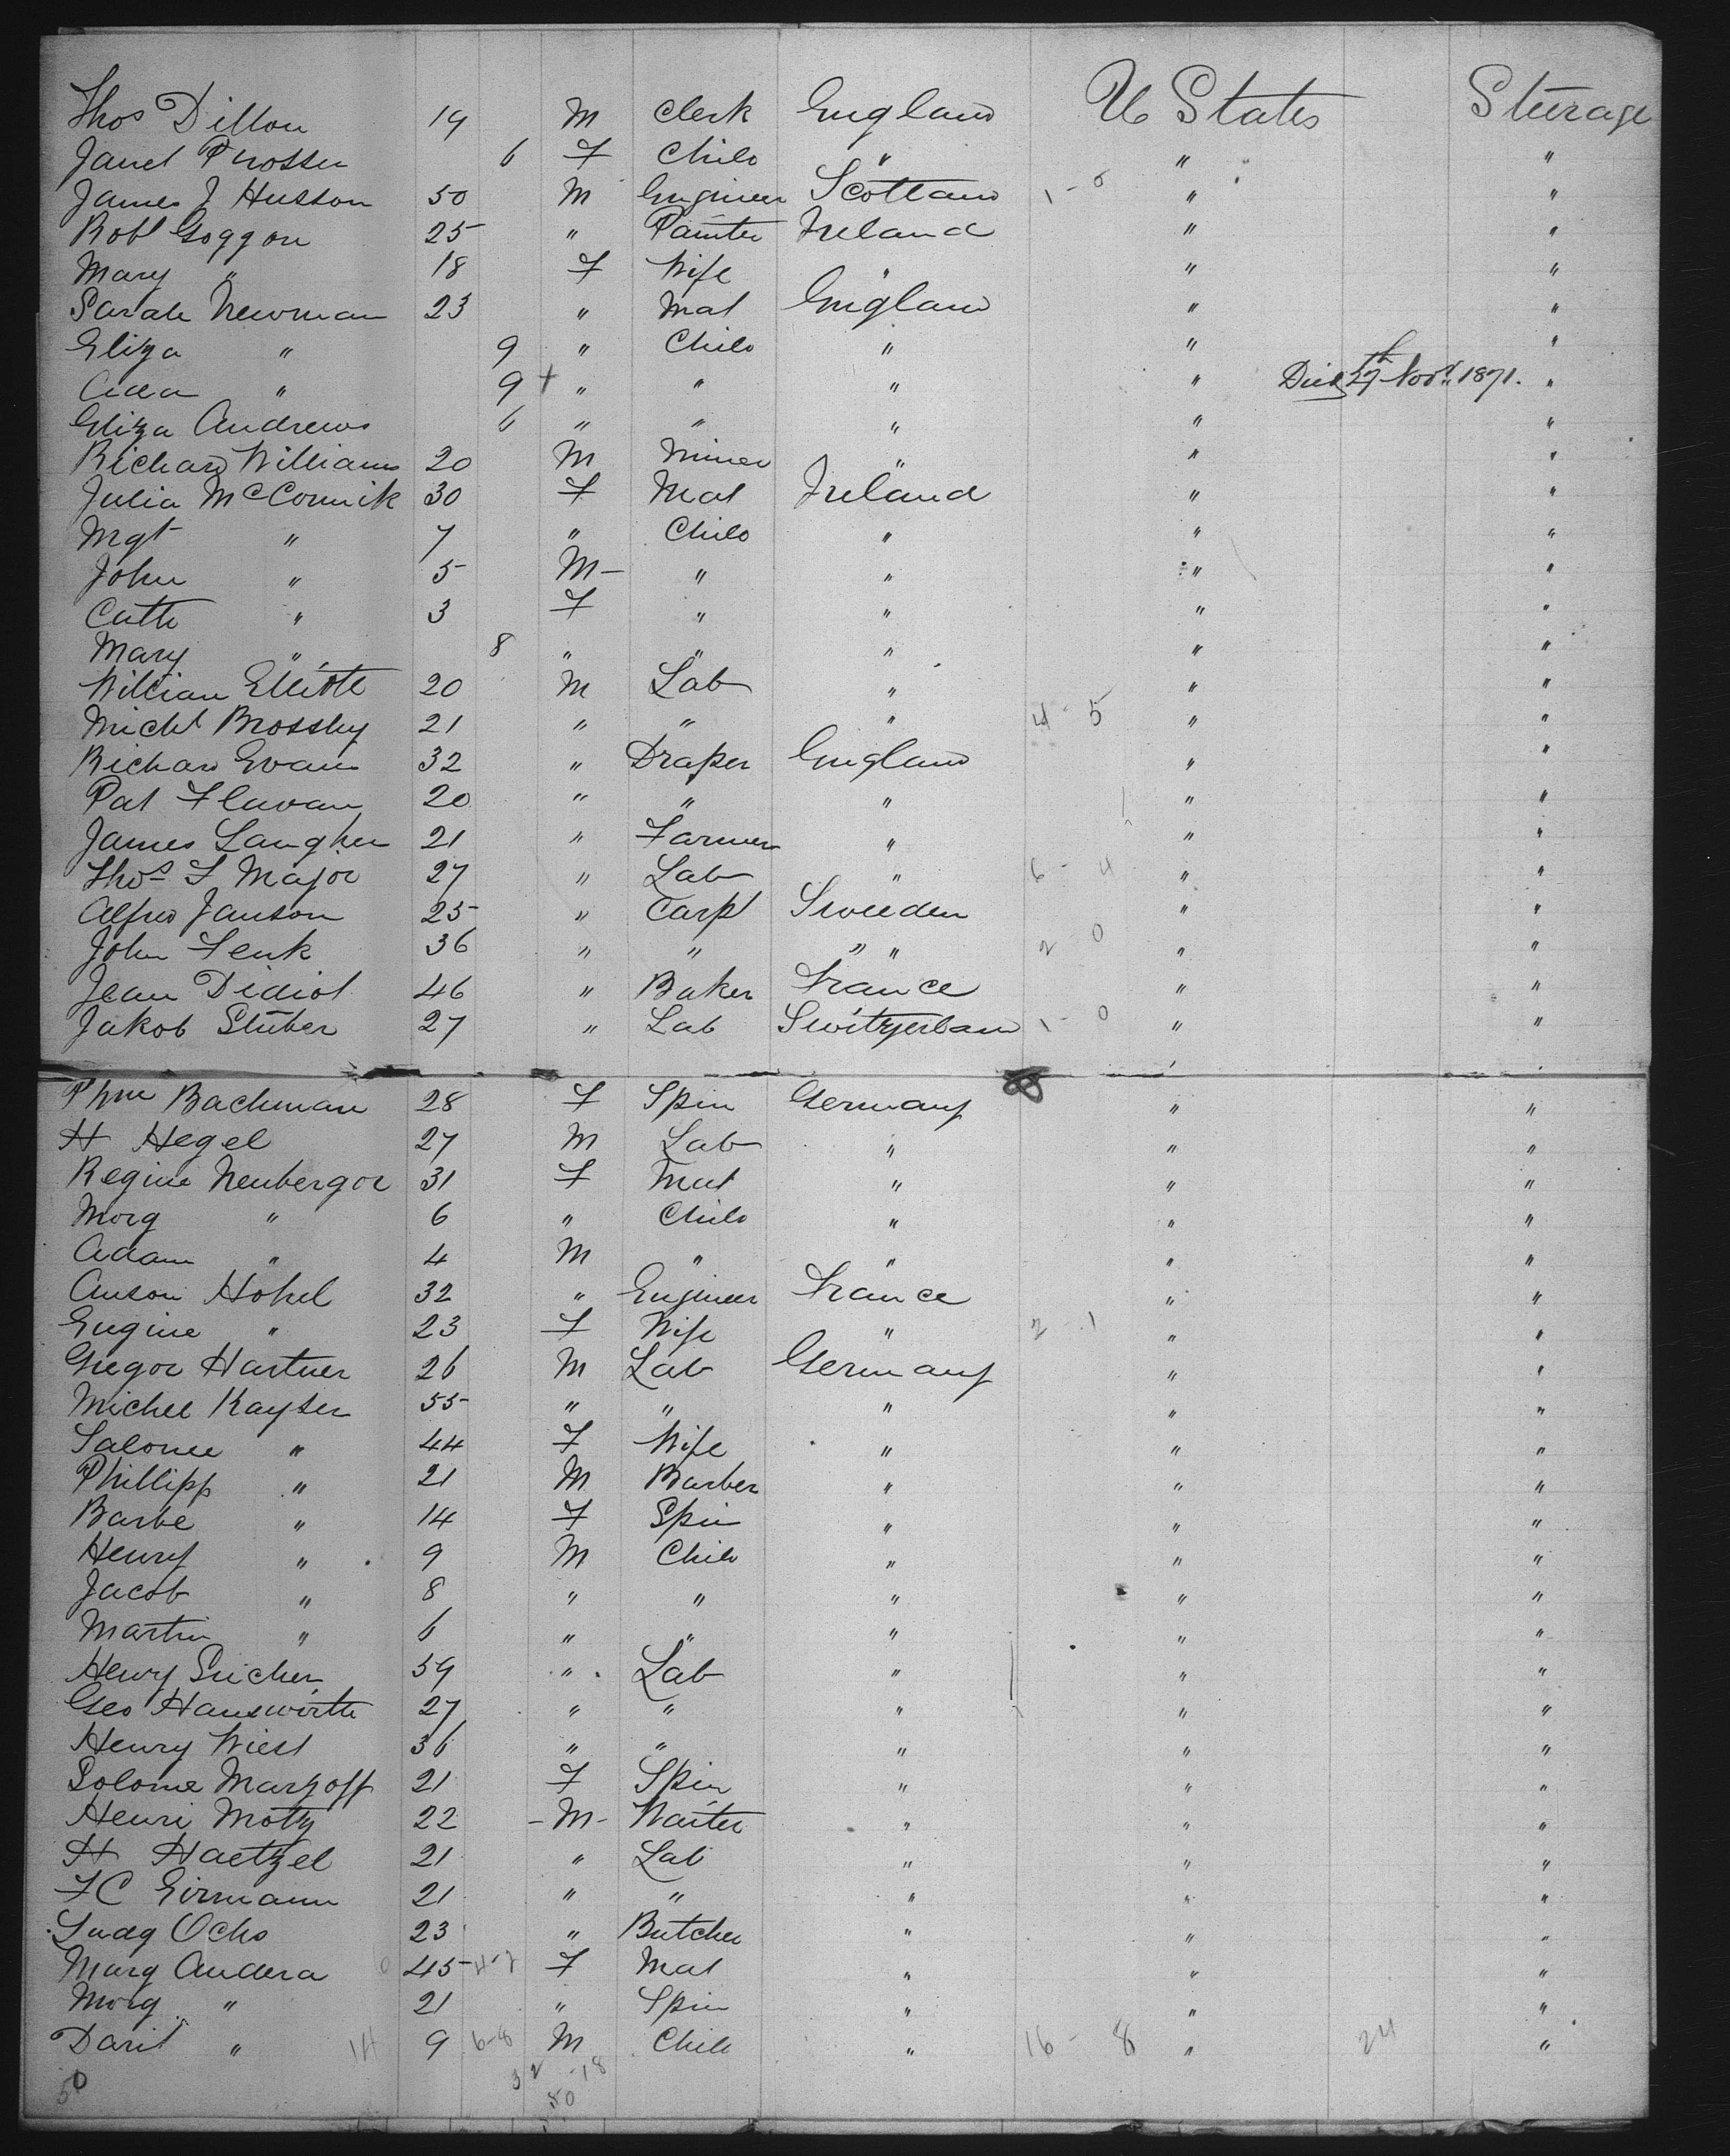 Thos Dillon 19 M Clerk England U States Steerage
Janet Prosser 6 F Child " " "
James J Husson 50 M Engineer Scotland 1 - 0 " "
Robt Goggon 25 " Painter Ireland " "
Mary " 18 F Wife " " "
Sarah Newman 23 " Mat England " "
Eliza " 9 " Child " " "
Ada " 9 + " " " " Died 27th Novr. 1871. "
Eliza Andrews 6 " " " " "
Richard Williams 20 M Miner " " "
Julia McCormik 30 F Mat Ireland " "
Mgt " 7 " Child " " "
John " 5 M - " " " "
Cath " 3 F " " " "
Mary " 8 " " " " "
William Elliott 20 M Lab " " "
Michl Brossley 21 " " " 4 - 5 " "
Richard Evans 32 " Draper England " "
Pat Flavan 20 " " " " "
James Langhen 21 " Farmer " " "
Thos F Major 27 " Lab " 6 - 4 " "
Alfred Janson 25 " Carpt Sweeden " "
John Fenk 36 " " " " 2 0 " "
Jean Didiot 46 " Baker France " "
Jakob Stüber 27 " Lab Switzerland 1 - 0 " "
Phne Bachman 28 F Spin Germany " "
H Hegel 27 M Lab " " "
Regine Neubergor 31 F Mat " " "
Morg " 6 " Child " " "
Adam " 4 M " " " "
Anson Hohel 32 " Engineer France " "
Engine " 23 F Wife " 2 - 1 " "
Gregor Hartner 26 M Lab Germany " "
Michel Kayser 55 " " " " "
Salome " 44 F Wife " " "
Phillipp " 21 M Barber " " "
Barbe " 14 F Spin " " "
Henry " 9 M Child " " "
Jacob " 8 " " " " "
Martin " 6 " " " " "
Henry Sucher 59 " Lab " " "
Geo Hansworth 27 " " " " "
Henry Wiest 36 " " " " "
Solome Marzolf 21 F Spin " " "
Henri Motz 22 - M - Waiter " " "
H Haetzel 21 " Lab " " "
FC Eirmann 21 " " " " "
Ludg Ochs 23 " Butcher " " "
Marg Andera 0 45 4-7 F Mat " " "
Morg " 21 " Spin " " "
Darit " 14 9 6-8 M Child " 16 - 8 " 24 "
50 32 - 18
50